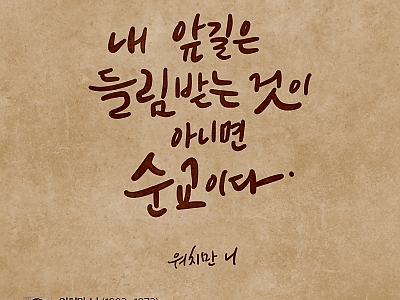 내 앞길은
들림받는 것이
아니면
순교이다.
워치만 니